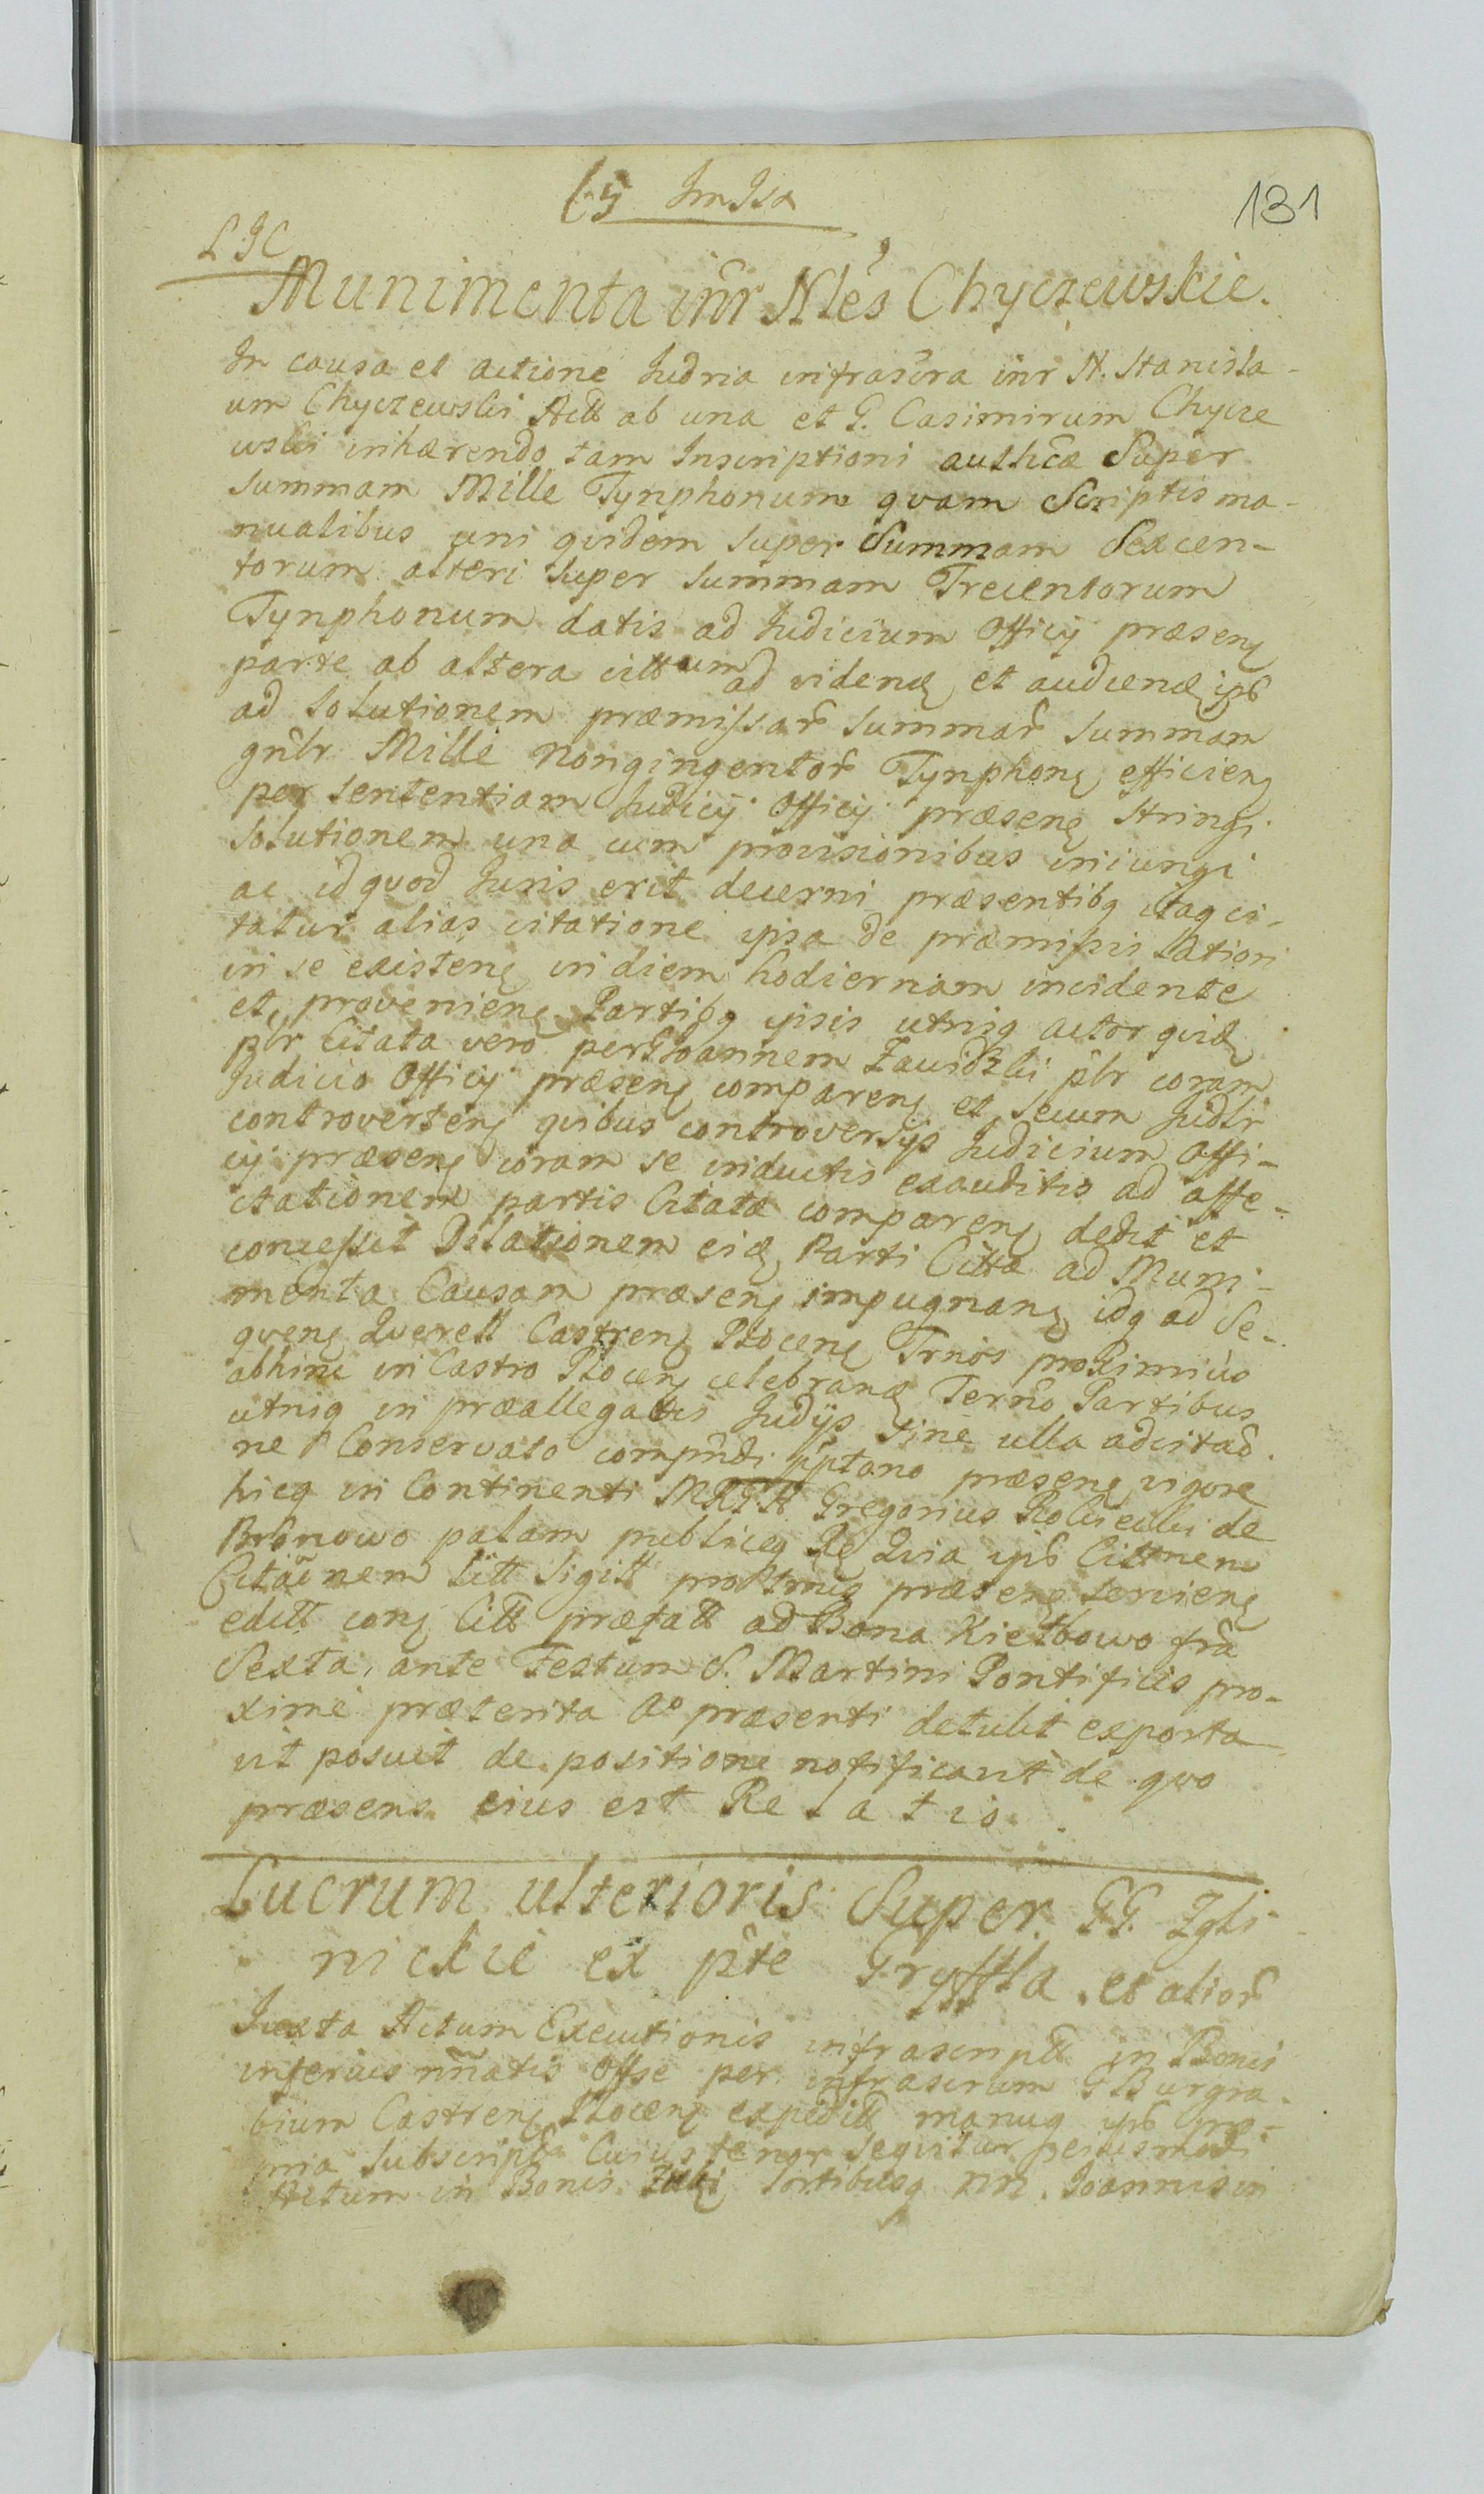 131
L J C
Munimenta inr̃ Nles Chyczewskie.
In causa et actione Judria infrascra inr N. Stanisla-
um Chyczewski Act ab una et G. Casimirum Chycze
wski inhærendo tam Inscriptioni authcæ Super
Summam Mille Tynphonum qvam Scriptis ma-
nualibus uni qvidem Super Summam Sexcen-
torum alteri Super Summam Trecentorum
Tynphonum datis ad Judicium Officij præsenς
parte ab altera citt um ad videnđ et audienđ ips
ad Solutionem præmissar̃ Summar̃ Summam
gnlr Mille Nongingentor̃ Tynphonς efficienς
per Sententiam Judicij Officij præsenς Stringi
Solutionem una cum provisionibus iniungi
ac id qvod Juris erit decerni præsentibq itaq ci-
tatur alias citatione ipsa de præmissis Latiori
in se existenς in diem hodiernam incidente
et provenienς Partibq ipsis utrisq actor qvidς
plr Citata vero per G Joannem Zawidzki plr coram
Judicio Officij præsenς comparenς et Secum Judlr
controvertenς qvibus controversijs Judicium Offi-
cij præsenς coram se inductis exauditis ad affe-
ctationem partis Citatæ comparenς dedit et
concessit Dilationem eidς Parti Cittæ ad Muni-
menta Causam præsenς impugnanς idq ad Se-
qvenς Qverell Castrenς Plocenς Trnos proximius
abhinc in Castro Plocenς celebranđ Termo Partibus
utrisq in præallegatis Judijs sine ulla adcitaõ
ne Conservato compndi præsenς vigore
hicq in Continenti Gregorius de
Bronowo palam publiceq Re Qvia ips Cittnem
Citãõnem Litt Sigill præsenς servienς
editt conς Citt præfatt ad Bona Kiełbowo fria
Sexta, ante Festum S. Martini Pontificis pro-
xime præterita Ao præsenti detulit exporta
vit posuit de positione notificavit de qvo
præsens eius est Relatio.
Lucrum ulterioris Super GG. Zgli-
nickie ex pte Gryffla et alior̃
Juxta Actum Executionis infrascriptt in Bonis
inferius nñatis Offse per infrascrum G Burgra-
bium Castrenς Plocenς expeditt manuq ips pro-
pria Subscriptt Cuius tenor Seqvitur eiusmodi
Actum in Bonis Sortibusq NN. Joannis in